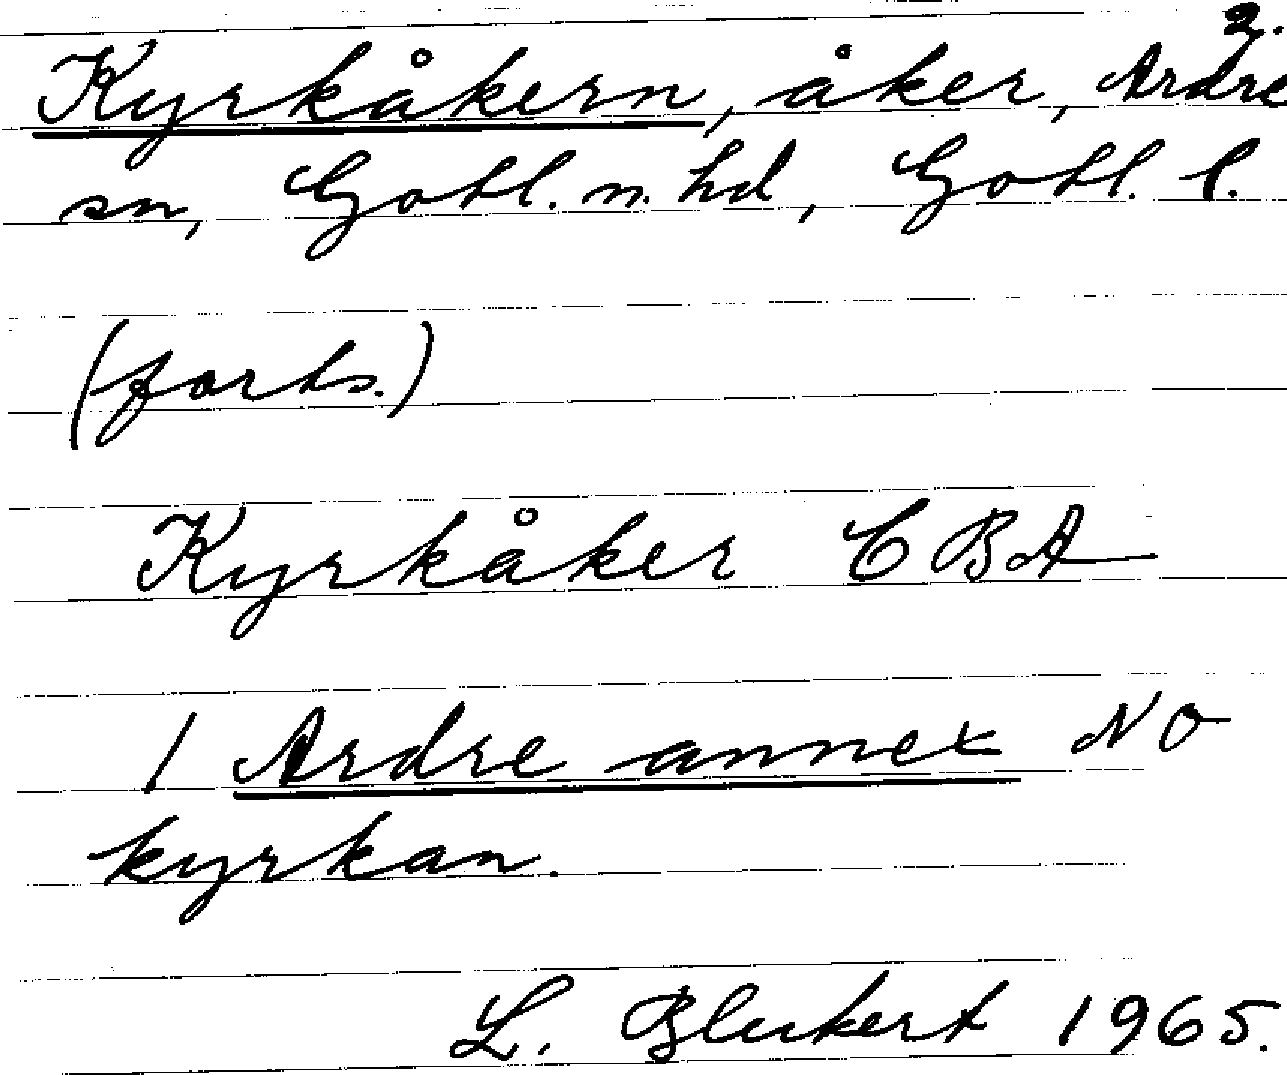 2.
Kyrkåkern, åker, Ardre
sn, Gotl. n. hd, Gotl. l.
(forts.)
Kyrkåker CBA
/ Ardre annex NO
kyrkan.
L. Blukert 1965.